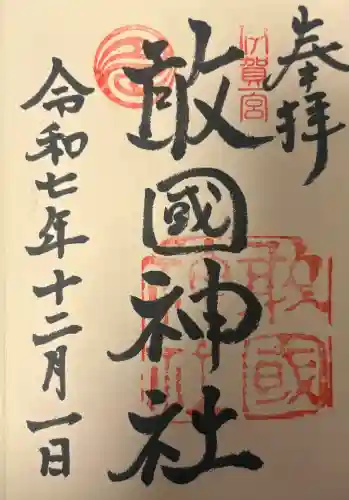 奉拝
伊賀一宮
敢國神社
令和七年十二月一日